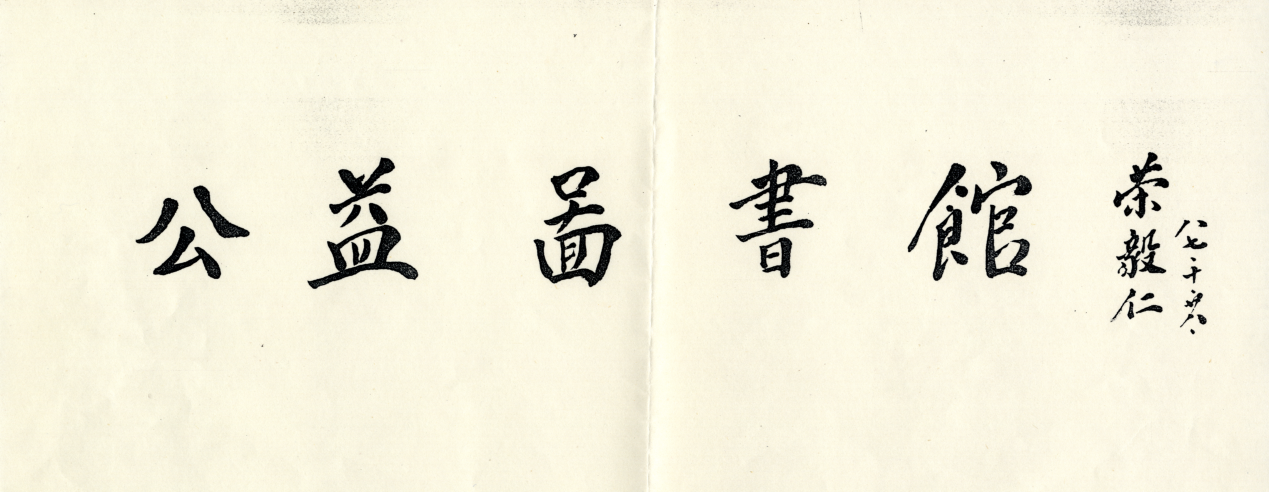 公益圖書館
荣毅仁
八七年